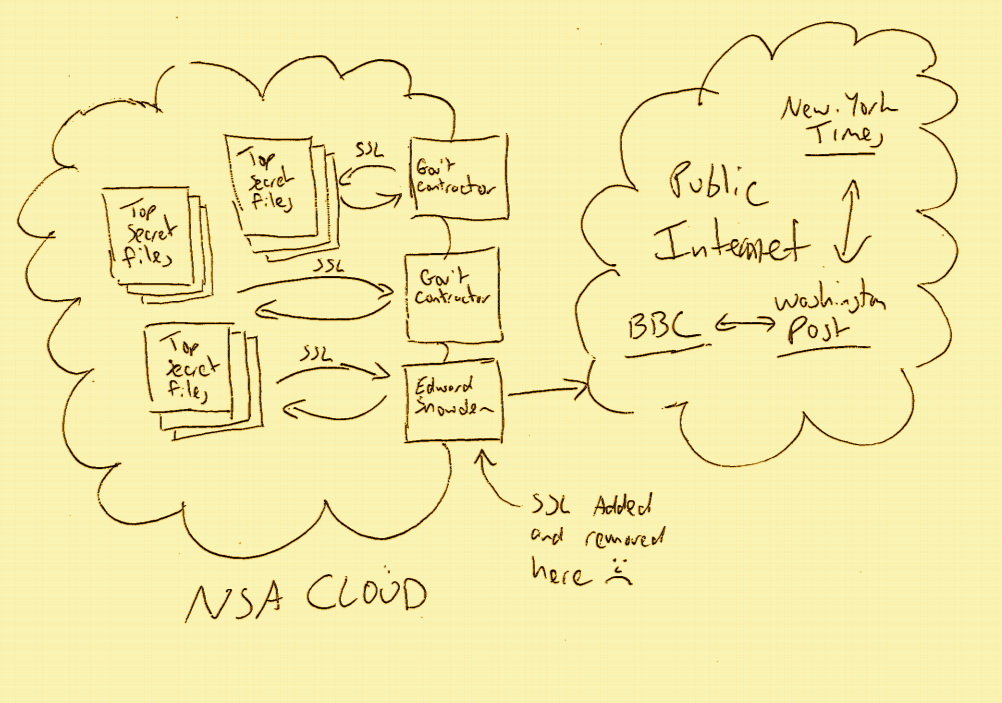 Top
secret
files
SSL
Gov't
contractor
Top
secret
files
SSL
Gov't
contractor
Top
secret
files
SSL
Edward
Snowden
SSL Added
and removed
here
NSA CLOUD
New York
Times
Public
Internet
BBC
Washington
Post